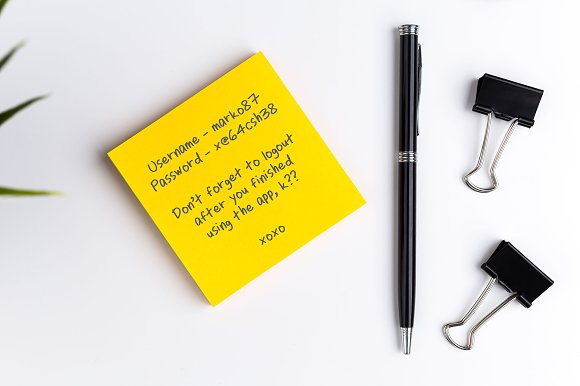 Username - marko87
Password - x@64csh38
Don't forget to logout
after you finished
using the app, k??
xoxo